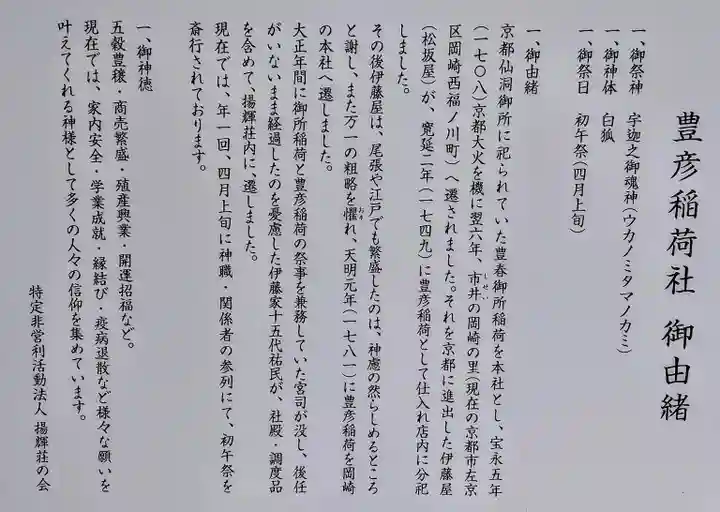 豊彦稲荷社 御由緒
一、御祭神 宇迦之御魂神(ウカノミタマノカミ)
一、御神体 白狐
一、御祭日 初午祭(四月上旬)
一、御由緒
京都仙洞御所に祀られていた豊春御所稲荷を本社とし、宝永五年
(一七〇八)京都大火を機に翌六年、市井の岡崎の里(現在の京都市左京
しせい
区岡崎西福ノ川町)へ遷されました。それを京都に進出した伊藤屋
(松坂屋)が、寛延二年(一七四九)に豊彦稲荷として仕入れ店内に分祀
しました。
その後伊藤屋は、尾張や江戸でも繁盛したのは、神慮の然らしめるところ
と謝し、また万一の粗略を懼れ、天明元年(一七八一)に豊彦稲荷を岡崎
おそ
の本社へ遷しました。
大正年間に御所稲荷と豊彦稲荷の祭事を兼務していた宮司が没し、後任
がいないまま経過したのを憂慮した伊藤家十五代祐民が、社殿・調度品
を含めて、揚輝荘内に、遷しました。
現在では、年一回、四月上旬に神職・関係者の参列にて、初午祭を
斎行されております。
一、御神徳
五穀豊穣・商売繁盛・殖産興業・開運招福など。
現在では、家内安全・学業成就・縁結び・疫病退散など様々な願いを
叶えてくれる神様として多くの人々の信仰を集めています。
特定非営利活動法人 揚輝荘の会